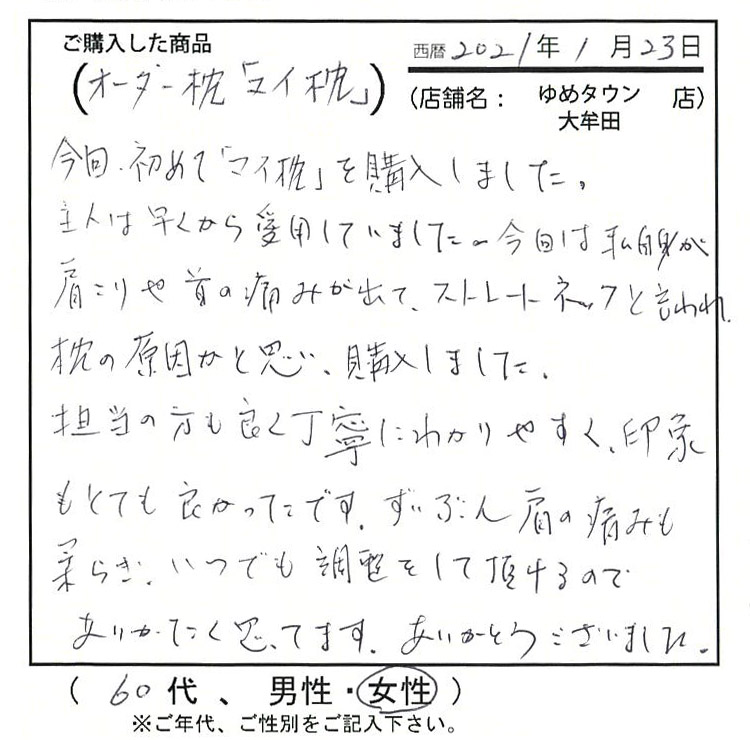 ご購入した商品
西暦 2021年 1月23日
(オーダー枕「マイ枕」)
(店舗名： ゆめタウン 大牟田 店)
今回、初めて「マイ枕」を購入しました。
主人は早くから愛用していました。今回は私自身が
肩こりや首の痛みが出て、ストレートネックと言われ、
枕の原因かと思い、購入しました。
担当の方も良く丁寧にわかりやすく、印象
もとても良かったです。ずいぶん肩の痛みも
柔らぎ、いつでも調整をして頂けるので
ありがたく思ってます。ありがとうございました。
( 60代、男性・女性 )
※ご年代、ご性別をご記入下さい。